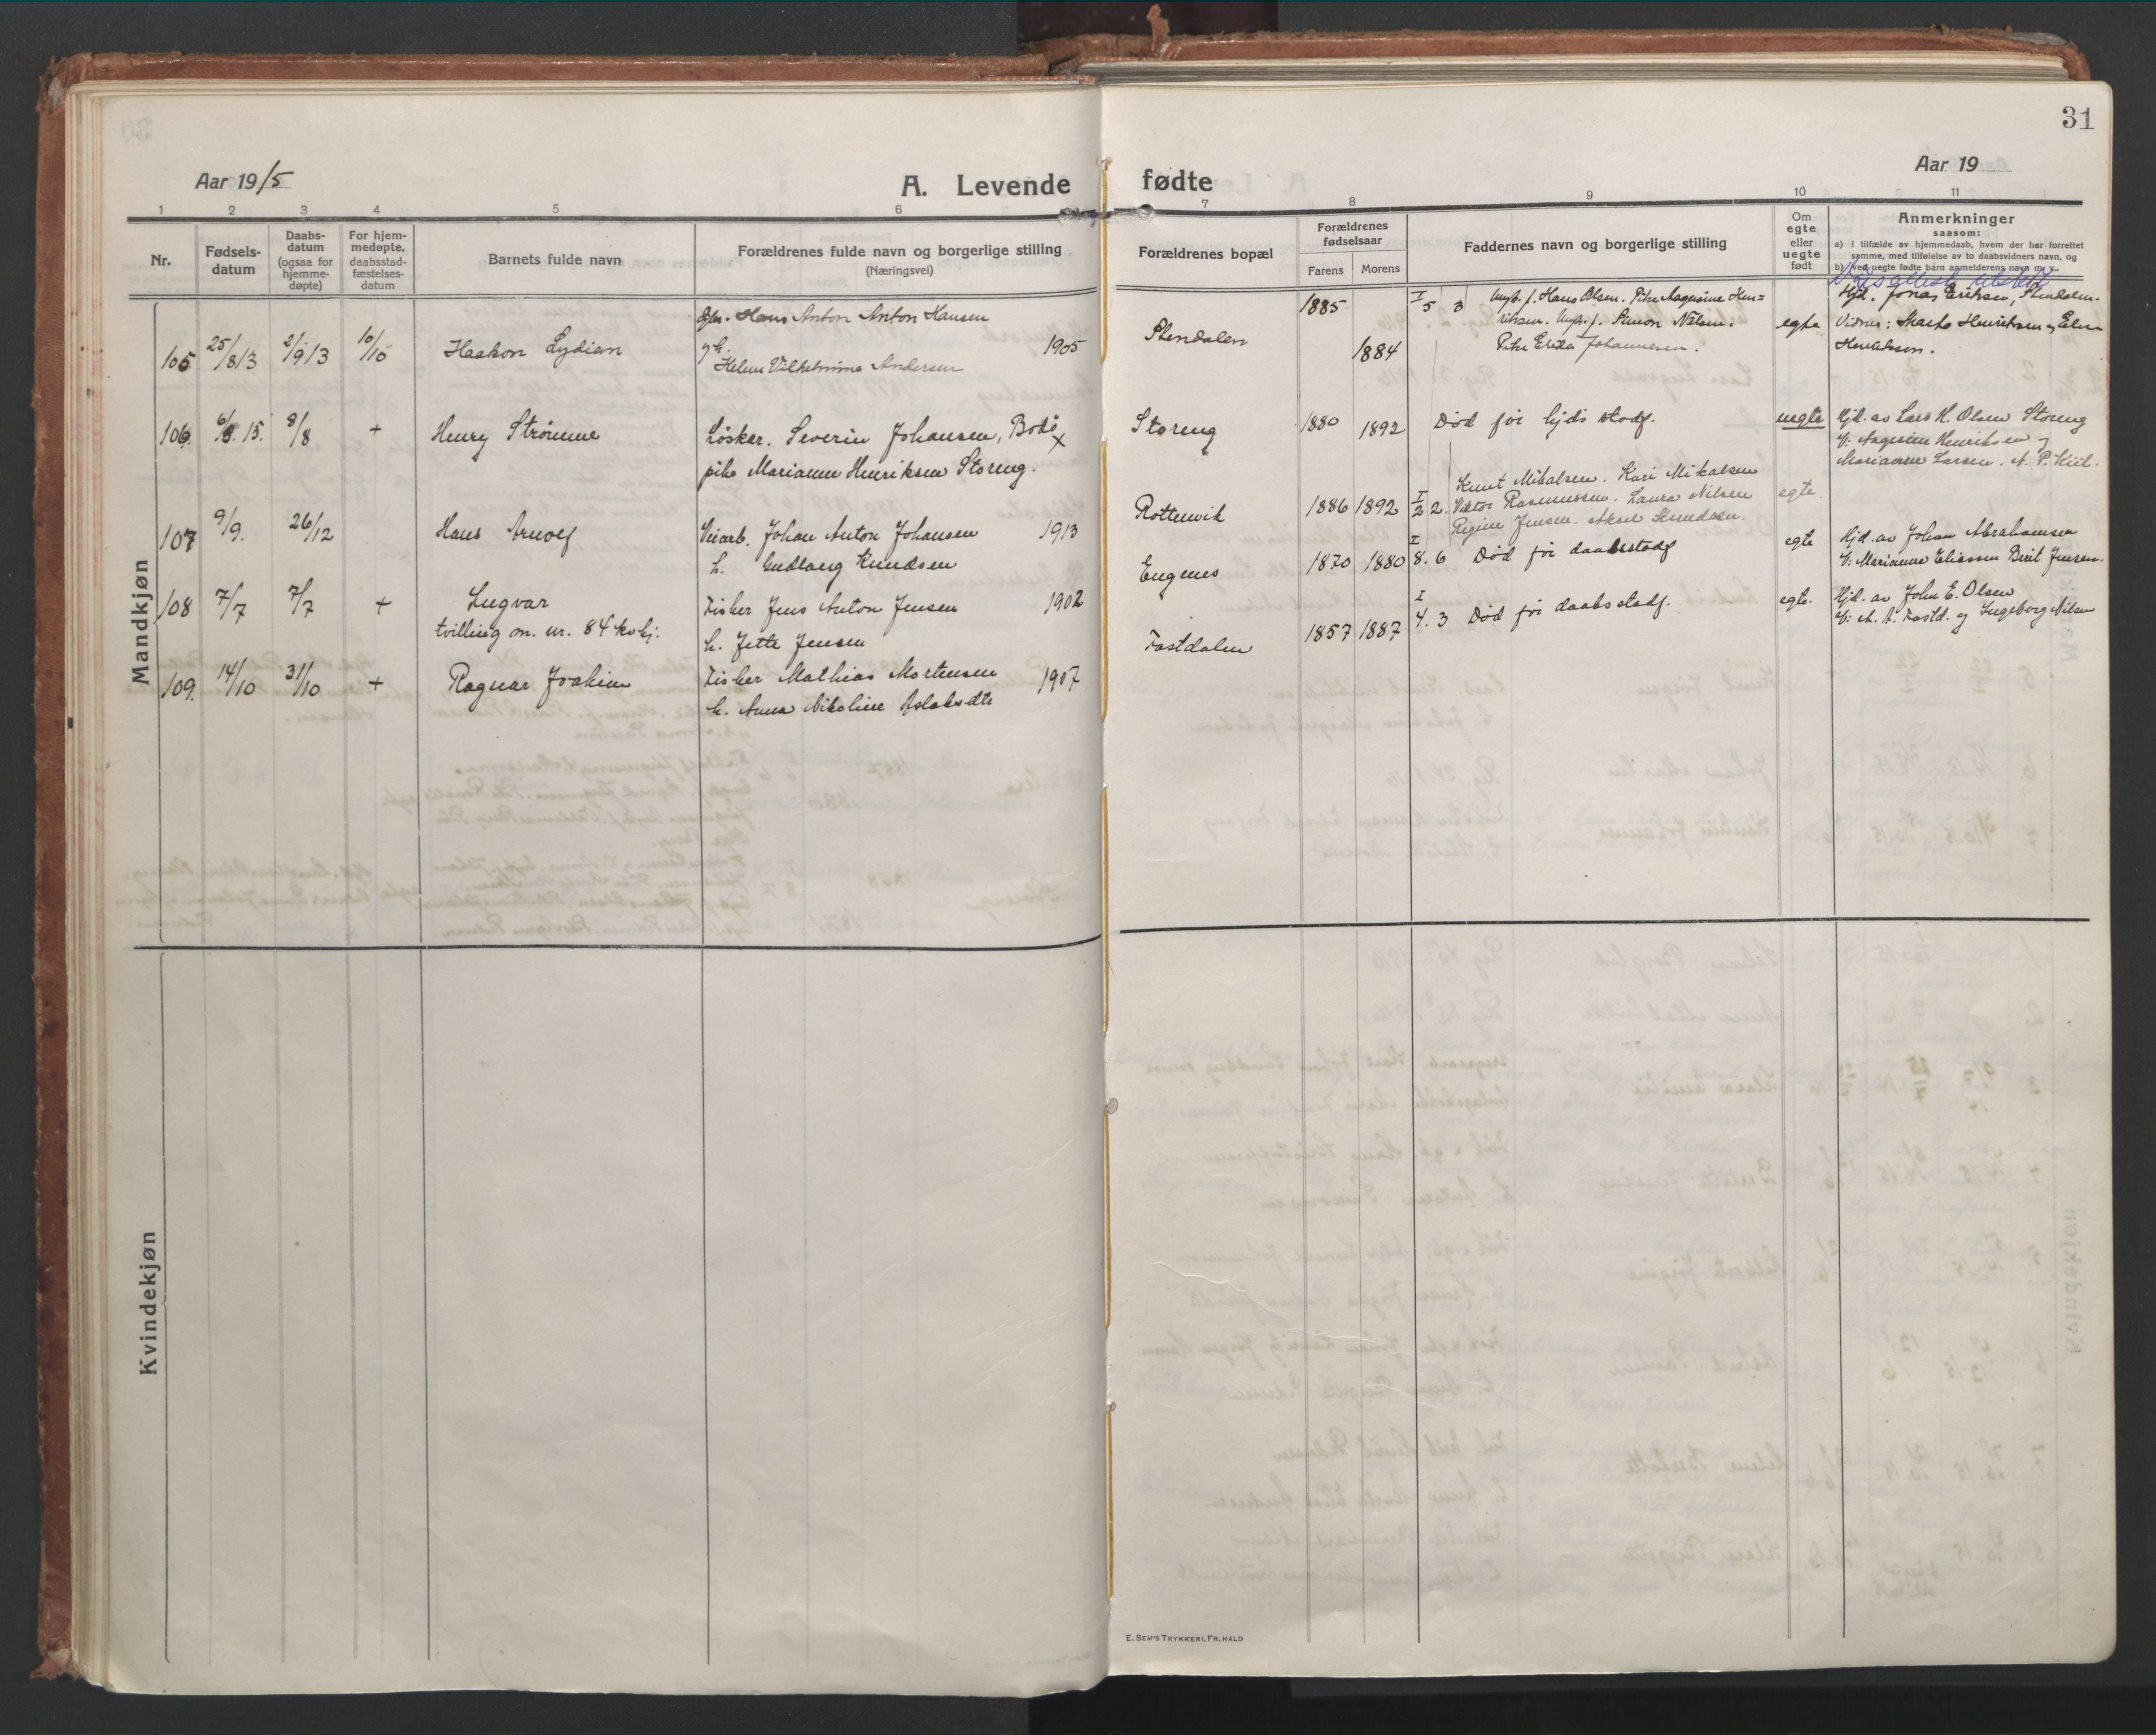 31
Aar 1915
A. Levende fødte
Aar 19
1 2 3 4 5 6 7 8 9 10 11
Nr.
Fødsels-
datum
Daabs-
datum
(ogsaa for
hjemme-
døpte)
For hjem-
medøpte,
daabsstad-
fæstelses-
datum
Barnets fulde navn
Forældrenes fulde navn og borgerlige stilling
(Næringsvei)
Forældrenes bopæl
Forældrenes
fødselsaar
Farens Morens
Faddernes navn og borgerlige stilling
Om
egte
eller
uegte
født
Anmerkninger
saasom:
a) i tilfælde av hjemmedaab, hvem der har forrettet
samme, med tilføielse av to daabsvidners navn, og
b) ved uegte fødte barn anmelderens navn m. v.
Mandkjøn
105 25/8 13 2/9 13 10/10 Haakon Lydian
Hans Anton Anton Hansen
Helene Vilhelmine Andersen 1905
Stendalen 1885 1884 I 5 3
Ungk. f. Hans Olsen. Pike Aagusine Hen=
riksen. Ungk. f. Simon Nilsen.
Pike Johannesen.
egte
Hjd. Jonas Eriksen, Stendalen.
Vidner: Henriksen og
Henriksen.
106. 6/8. 15. 8/8 + Henry Strømme
Løsker. Severin Johansen, Bodø x
pike Marianne Henriksen Storeng.
Storeng 1880 1892 Død før hjds stadf. uegte
Hjd. av Lars H. Olsen Storeng
V: Aagesine Henriksen og
Marianne Larsen. A. P. Kiil.
107 9/9. 26/12 Hans Arnolf
Veiarb. Johan Anton Johansen 1913
h. Gudlaug Knudsen
Rottenvik 1886 1892 I 2 2.
Knut Mikalsen. Kari Mikalsen
Viktor Rasmussen. Laura Nilsen
Regine Jensen. Aksel Knudsen.
egte.
108 7/7 7/7 + Ingvar
tvilling m. nr. 84 kvkj.
Fisker Jens Anton Jensen 1902
h. Jette Jensen
Engenes 1870 1880 I 8. 6 Død før daabsstadf egte
Hjd. av Johan Abrahamsen
V: Marianne Eliassen Berit Jensen.
109. 14/10 31/10 + Ragnar Joakim
Fisker Mathias Mortensen 1907
h. Anna Nikoline Aslaksdtr
Fastdalen 1857 1887 I 4. 3 Død før daabsstadf. egte.
Hjd. av John E. Olsen
V: A. Fastd. og Ingeborg Nilsen
Kvindekjøn
E. SEM'S TRYKKERI, FR.HALD